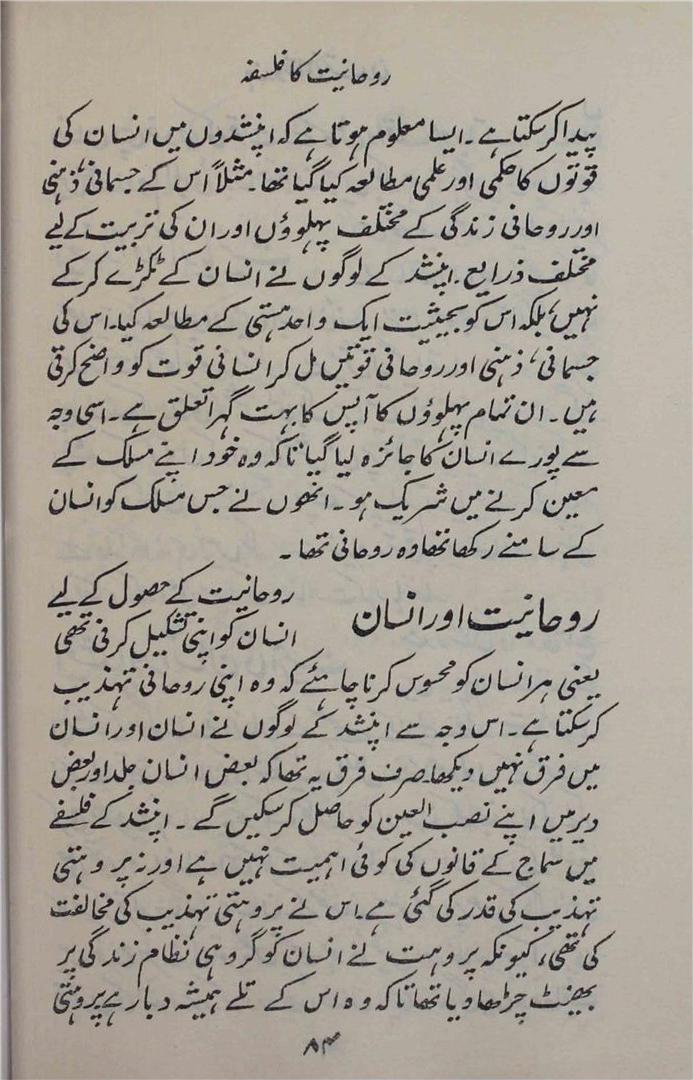 روحانیت کا فلسفہ
پیدا کر سکتا ہے۔ ایسا معلوم ہوتا ہے کہ اپنشدوں میں انسان کی
قوتوں کا حکمی اور علمی مطالعہ کیا گیا تھا۔ مثلاً اس کے جسمانی، ذہنی
اور روحانی زندگی کے مختلف پہلوؤں اور ان کی تربیت کے لیے
مختلف ذرایع۔ اپنشد کے لوگوں نے انسان کے ٹکڑے کر کے
نہیں، بلکہ اس کو بحیثیت ایک واحد ہستی کے مطالعہ کیا۔ اس کی
جسمانی، ذہنی اور روحانی قوتیں مل کر انسانی قوت کو واضح کرتی
ہیں۔ ان تمام پہلوؤں کا آپس کا بہت گہرا تعلق ہے۔ اسی وجہ
سے پورے انسان کا جائزہ لیا گیا، تاکہ وہ خود اپنے مسلک کے
معین کرنے میں شریک ہو۔ انھوں نے جس مسلک کو انسان
کے سامنے رکھا تھا وہ روحانی تھا۔
روحانیت اور انسان
روحانیت کے حصول کے لیے
انسان کو اپنی تشکیل کرنی تھی
یعنی ہر انسان کو محسوس کرنا چاہئے کہ وہ اپنی روحانی تہذیب
کر سکتا ہے۔ اس وجہ سے اپنشد کے لوگوں نے انسان اور انسان
میں فرق نہیں دیکھا۔ صرف فرق یہ تھا کہ بعض انسان جلد اور بعض
دیر میں اپنے نصب العین کو حاصل کر سکیں گے۔ اپنشد کے فلسفے
میں سماج کے قانوں کی کوئی اہمیت نہیں ہے اور نہ پروہتی
تہذیب کی قدر کی گئی ہے۔ اس نے پروہتی تہذیب کی مخالفت
کی تھی، کیونکہ پروہت نے انسان کو گروہی نظام زندگی پر
بھینٹ چڑھا دیا تھا تاکہ وہ اس کے تلے ہمیشہ دبا رہے پروہتی